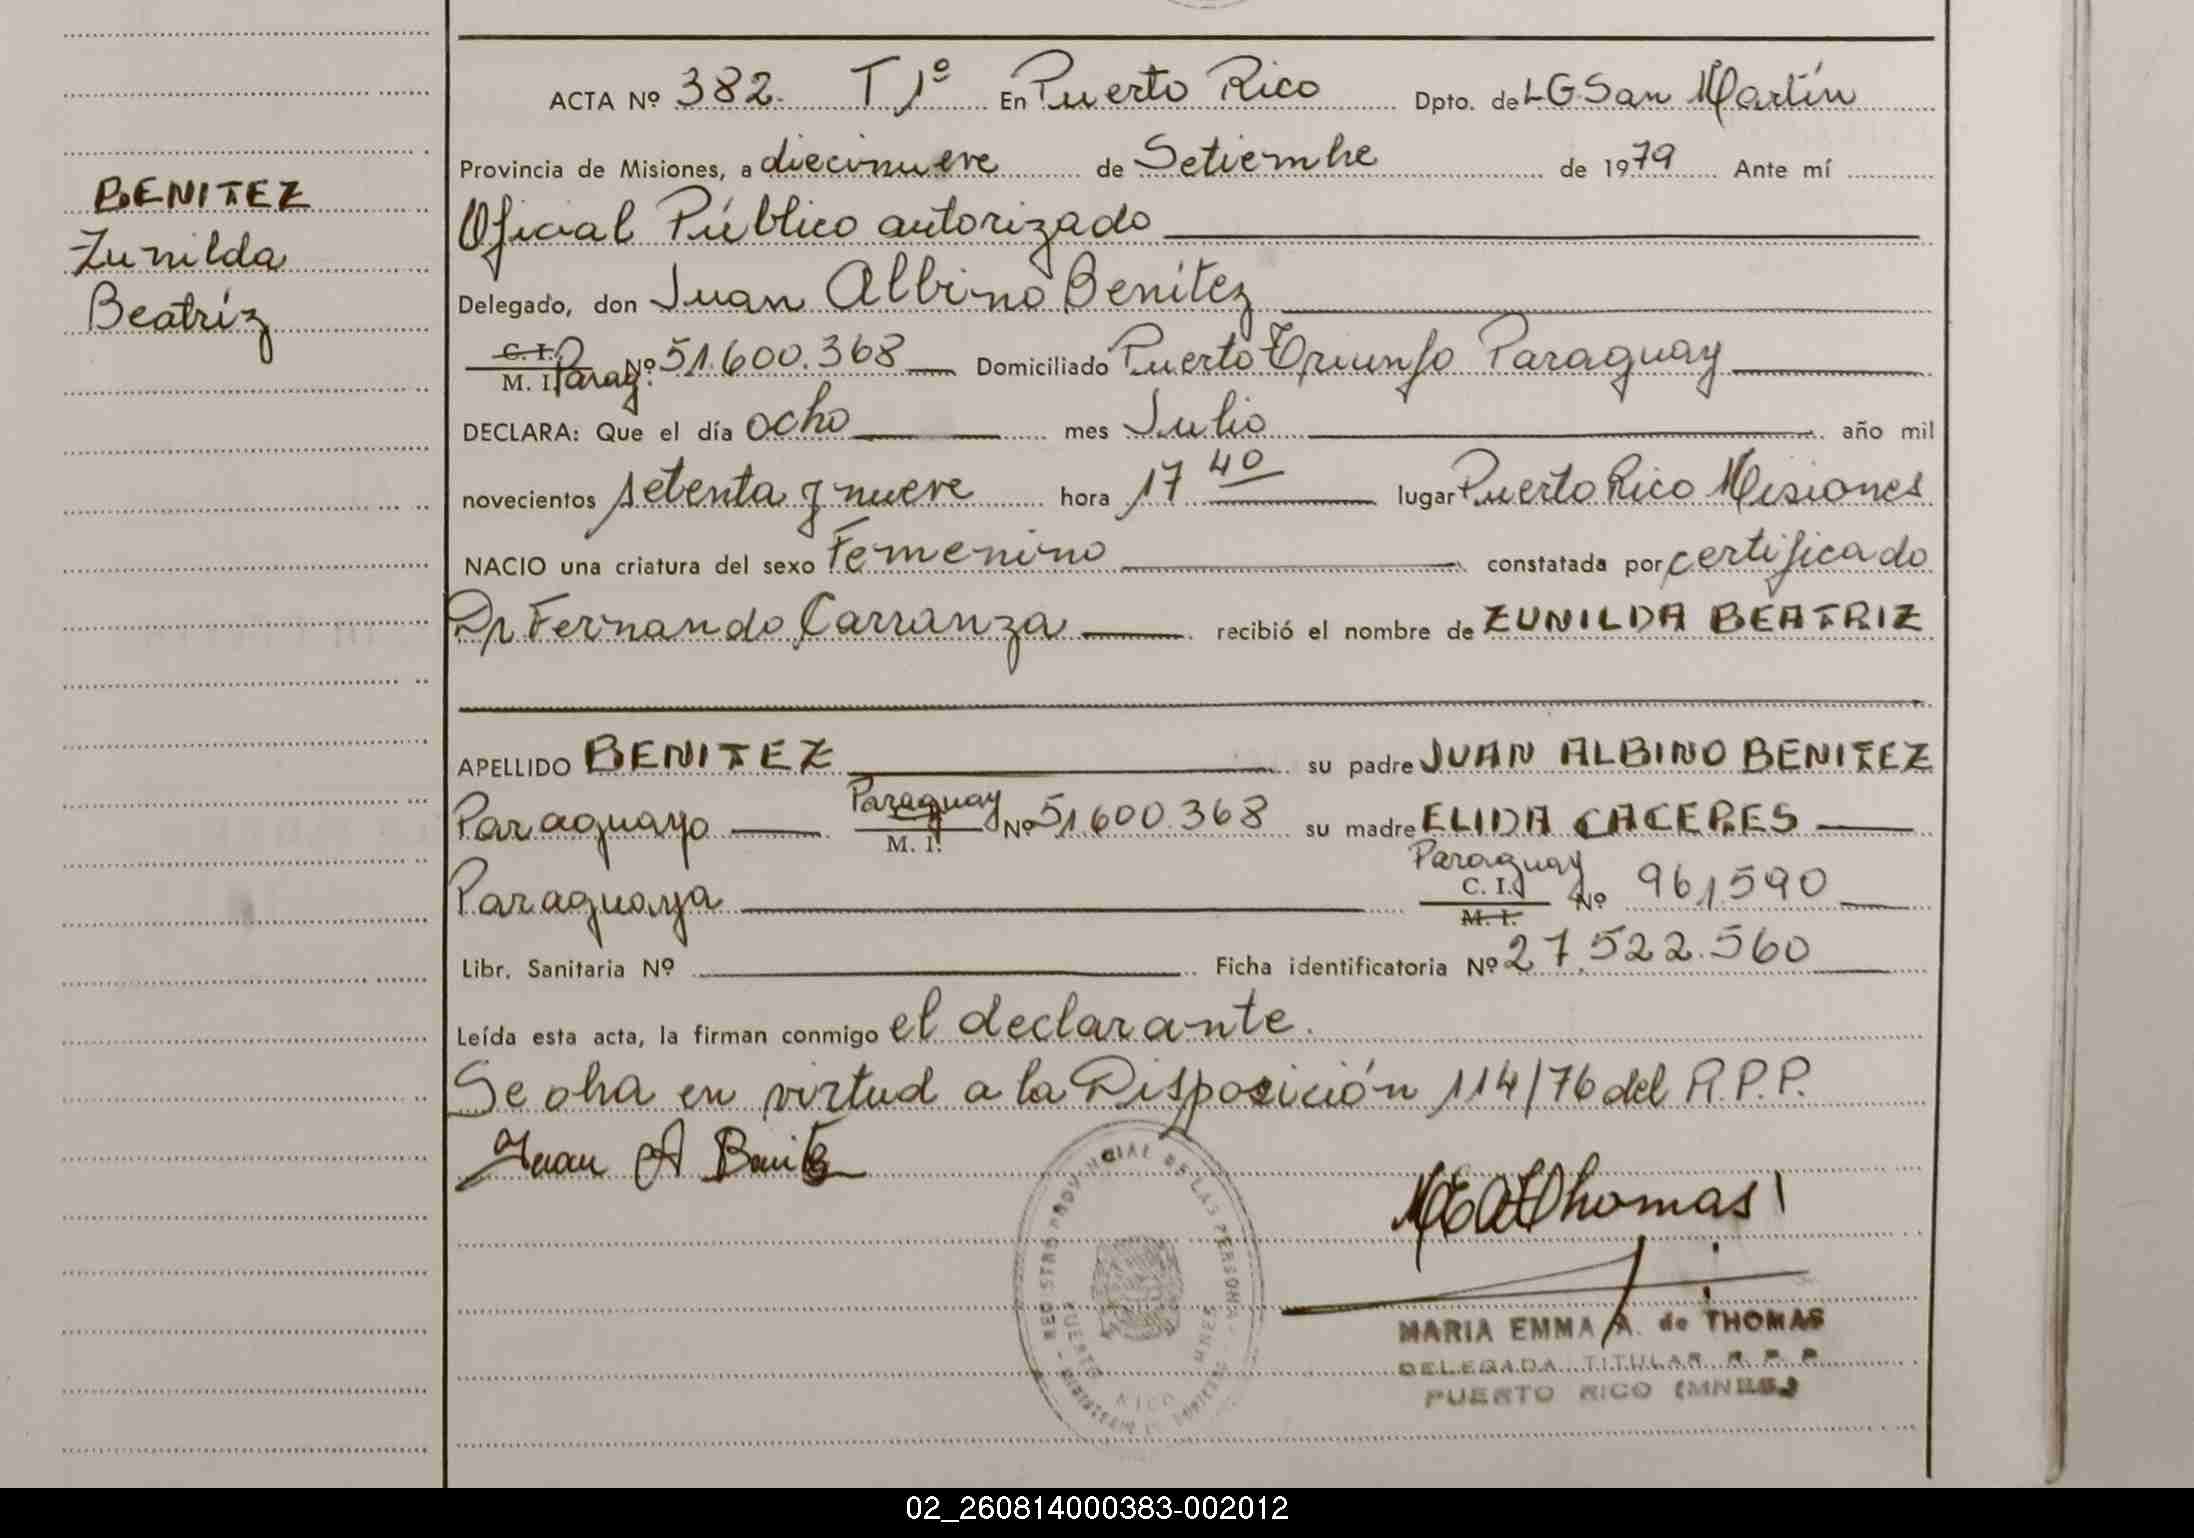 ACTA Nº 382. T 1º En Puerto Rico Dpto. de LG San Martín
Provincia de Misiones, a diecinueve de Setiembre de 1979 Ante mí
BENITEZ
Zunilda
Beatríz
Oficial Público autorizado
Delegado, don Juan Albino Benítez
C. I. / M. I. Parag. Nº 51.600.368 Domiciliado Puerto Triunfo Paraguay
DECLARA: Que el día ocho mes Julio año mil
novecientos setenta y nueve hora 17 40 lugar Puerto Rico Misiones
NACIO una criatura del sexo Femenino constatada por certificado
Dr Fernando Carranza recibió el nombre de ZUNILDA BEATRIZ
APELLIDO BENITEZ su padre JUAN ALBINO BENITEZ
Paraguayo Paraguay M. I. Nº 51.600.368 su madre ELIDA CACERES
Paraguaya Paraguay C. I. / M. I. Nº 961.590
Libr. Sanitaria Nº Ficha identificatoria Nº 27.522.560
Leída esta acta, la firman conmigo el declarante.
Se obra en virtud a la Disposición 114/76 del R.P.P.
Juan A Benitez
REGISTRO PROVINCIAL DE LAS PERSONAS
PUERTO RICO MNES
MARIA EMMA A. de THOMAS
DELEGADA TITULAR R. P. P.
PUERTO RICO (MNES.)
02_260814000383-002012